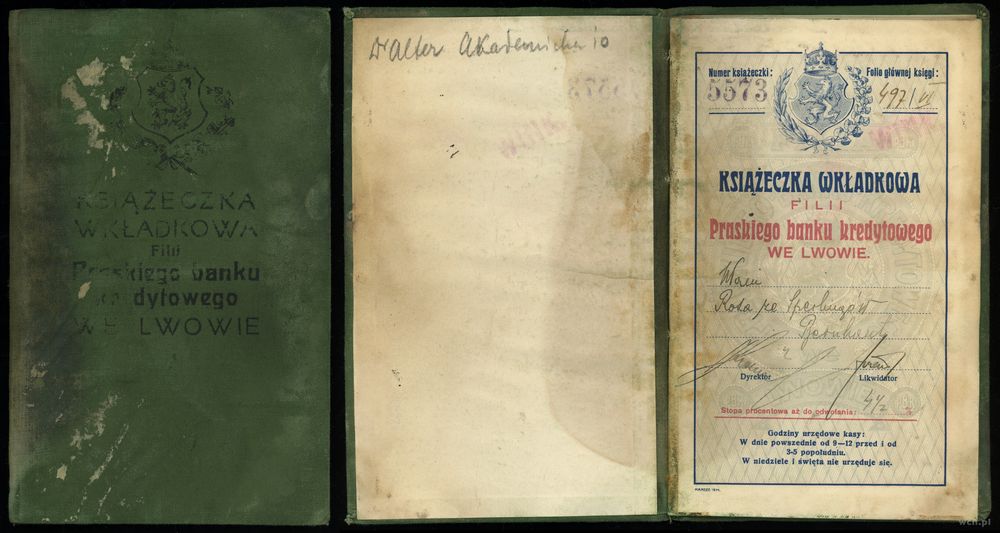 KSIĄŻECZKA
WKŁADKOWA
Filii
Praskiego banku
kredytowego
WE LWOWIE
Dr Alter Akademicka 10
Numer książeczki:
5573
Folio głównej księgi:
497/VI
KSIĄŻECZKA WKŁADKOWA
FILII
Praskiego banku kredytowego
WE LWOWIE.
Roza
Dyrektor
Likwidator
Stopa procentowa aż do odwołania: 4½
Godziny urzędowe kasy:
W dnie powszednie od 9—12 przed i od
3-5 popołudniu.
W niedziele i święta nie urzęduje się.
wcn.pl